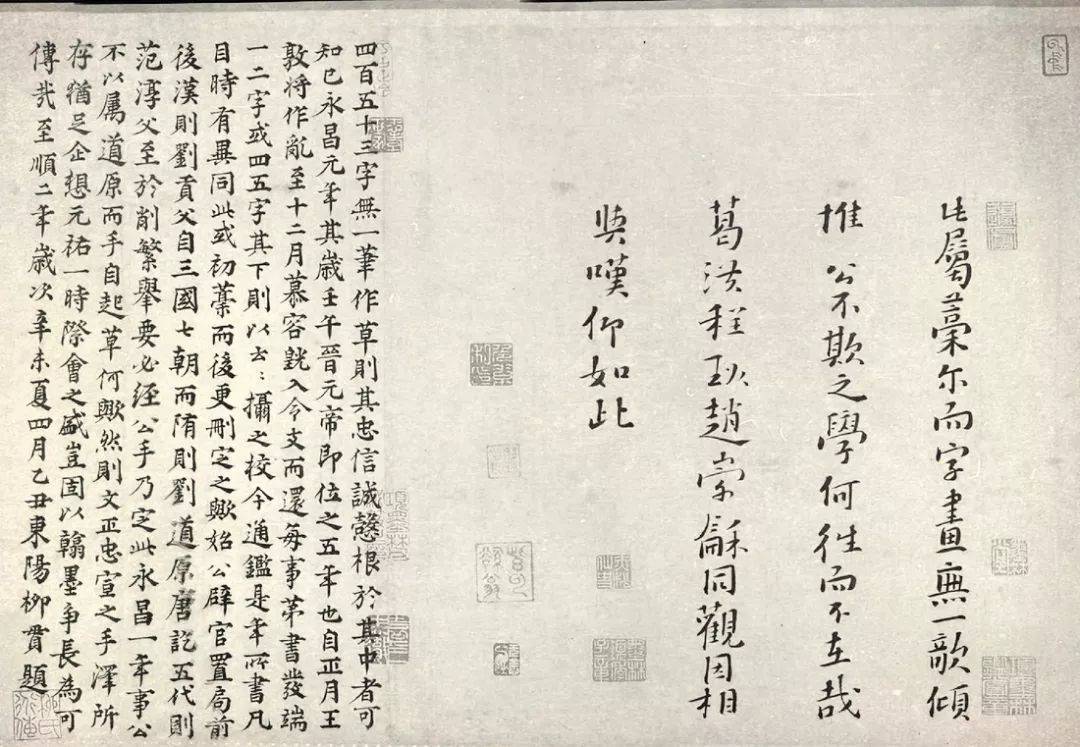 此屬藁尔而字畫無一欹傾
推公不欺之學何往而不在哉
葛洪程珌趙崇龢同觀因相
與嘆仰如此
四百五十三字無一筆作草則其忠信誠慤根於其中者可
知已永昌元年其歲壬午晉元帝即位之五年也自正月王
敦將作亂至十二月慕容皝入令支而還每事第書發端
一二字或四五字其下則以云〻攝之校今通鑑是年所書凡
目時有異同此或初藁而後更刪定之歟始公辟官置局前
後漢則劉貢父自三國七朝而隋則劉道原唐訖五代則
范淳父至於削繁舉要必經公手乃定此永昌一年事公
不以属道原而手自起草何歟然則文正忠宣之手澤所
存猶足企想元祐一時際會之盛豈固以翰墨爭長為可
傳哉至順二年歲次辛未夏四月乙丑東陽柳貫題